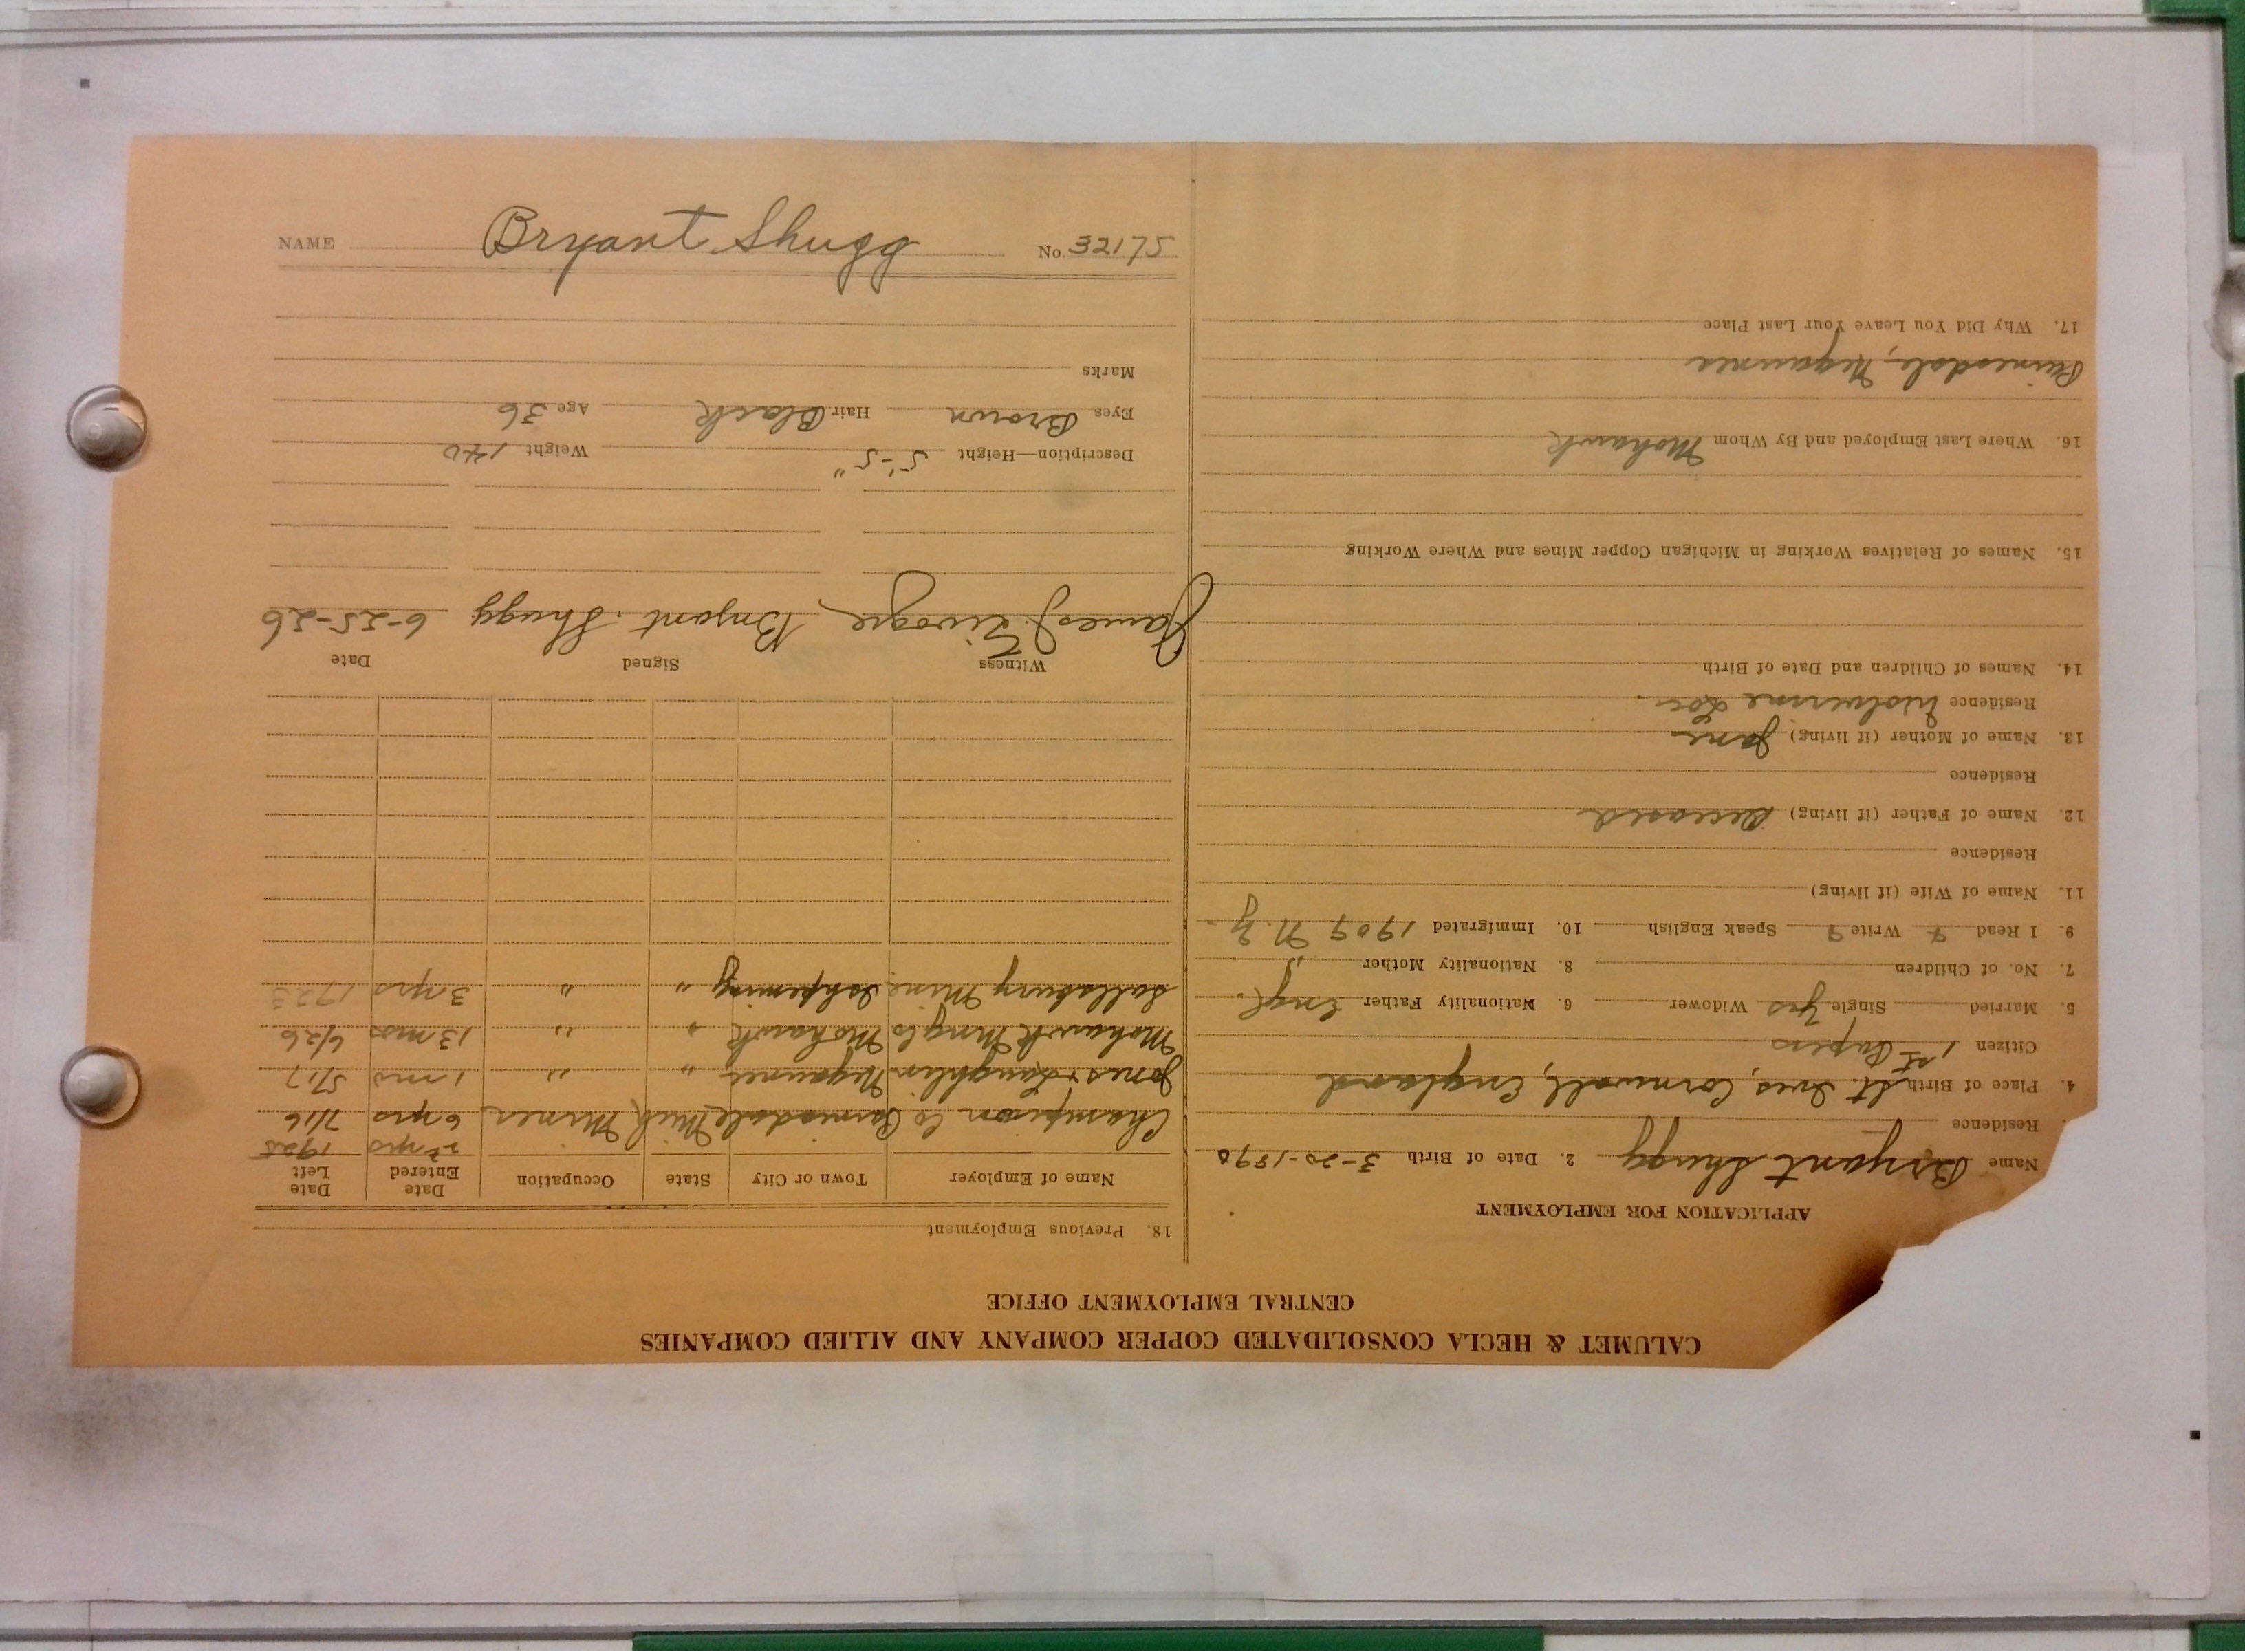 NAME Bryant Shugg No. 32175
CALUMET & HECLA CONSOLIDATED COPPER COMPANY AND ALLIED COMPANIES
CENTRAL EMPLOYMENT OFFICE
APPLICATION FOR EMPLOYMENT
Name Bryant Shugg 2. Date of Birth 3-20-1890
Residence
4. Place of Birth St. Ives, Cornwall, England
Citizen 1st Papers
5. Married Single Yes Widower 6. Nationality Father Engl.
7. No. of Children 8. Nationality Mother "
9. I Read Write Speak English 10. Immigrated 1909 N.Y.
11. Name of Wife (if living)
Residence
12. Name of Father (if living) Deceased
Residence
13. Name of Mother (if living) Jane
Residence Wolverine Loc.
14. Names of Children and Date of Birth
15. Names of Relatives Working in Michigan Copper Mines and Where Working
16. Where Last Employed and By Whom Mohawk
Painesdale, Negaunee
17. Why Did You Leave Your Last Place
18. Previous Employment
Name of Employer Town or City State Occupation Date Entered Date Left
2 yrs 1925
Champion Co Painesdale Mich Miner 6 yrs 7/16
Jones & Laughlin Negaunee " " 1 mo 5/17
Mohawk Mng Co Mohawk " " 13 mos 6/26
Salisbury Mine Ishpeming " " 3 yrs
Witness Signed Date
James J. Bryant Shugg 6-25-26
Description—Height 5'-5" Weight 140
Eyes Brown Hair Black Age 36
Marks